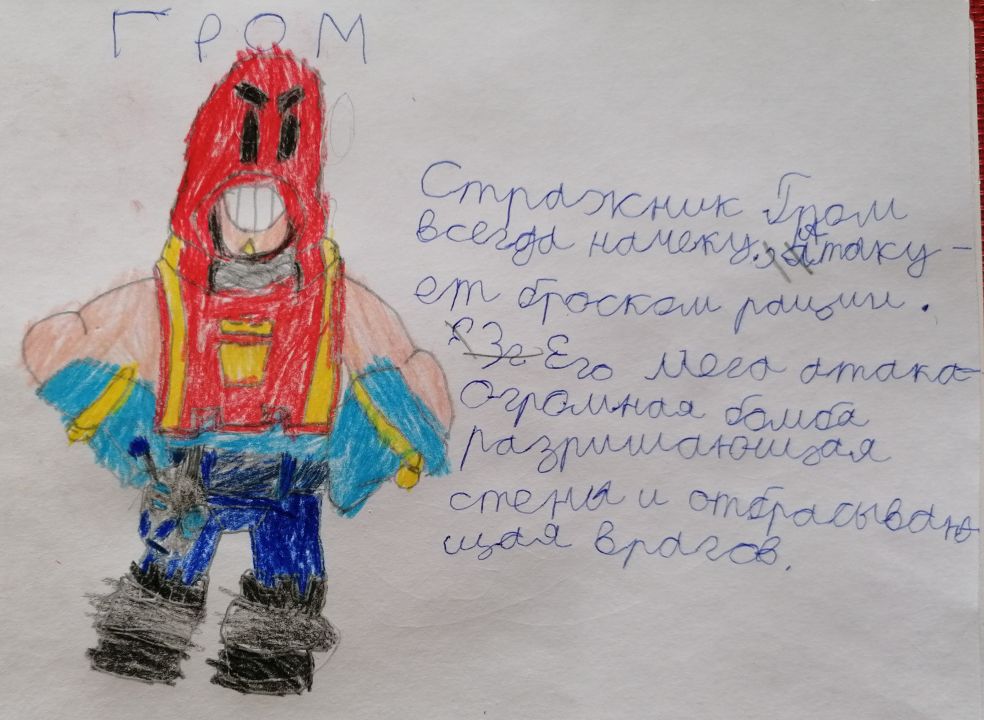 ГРОМ
Стражник Гром
всегда начеку. Атаку-
ет броском рации.
Его мега атака-
Огромная бомба
разришающая
стены и отбрасываю-
щая врагов.